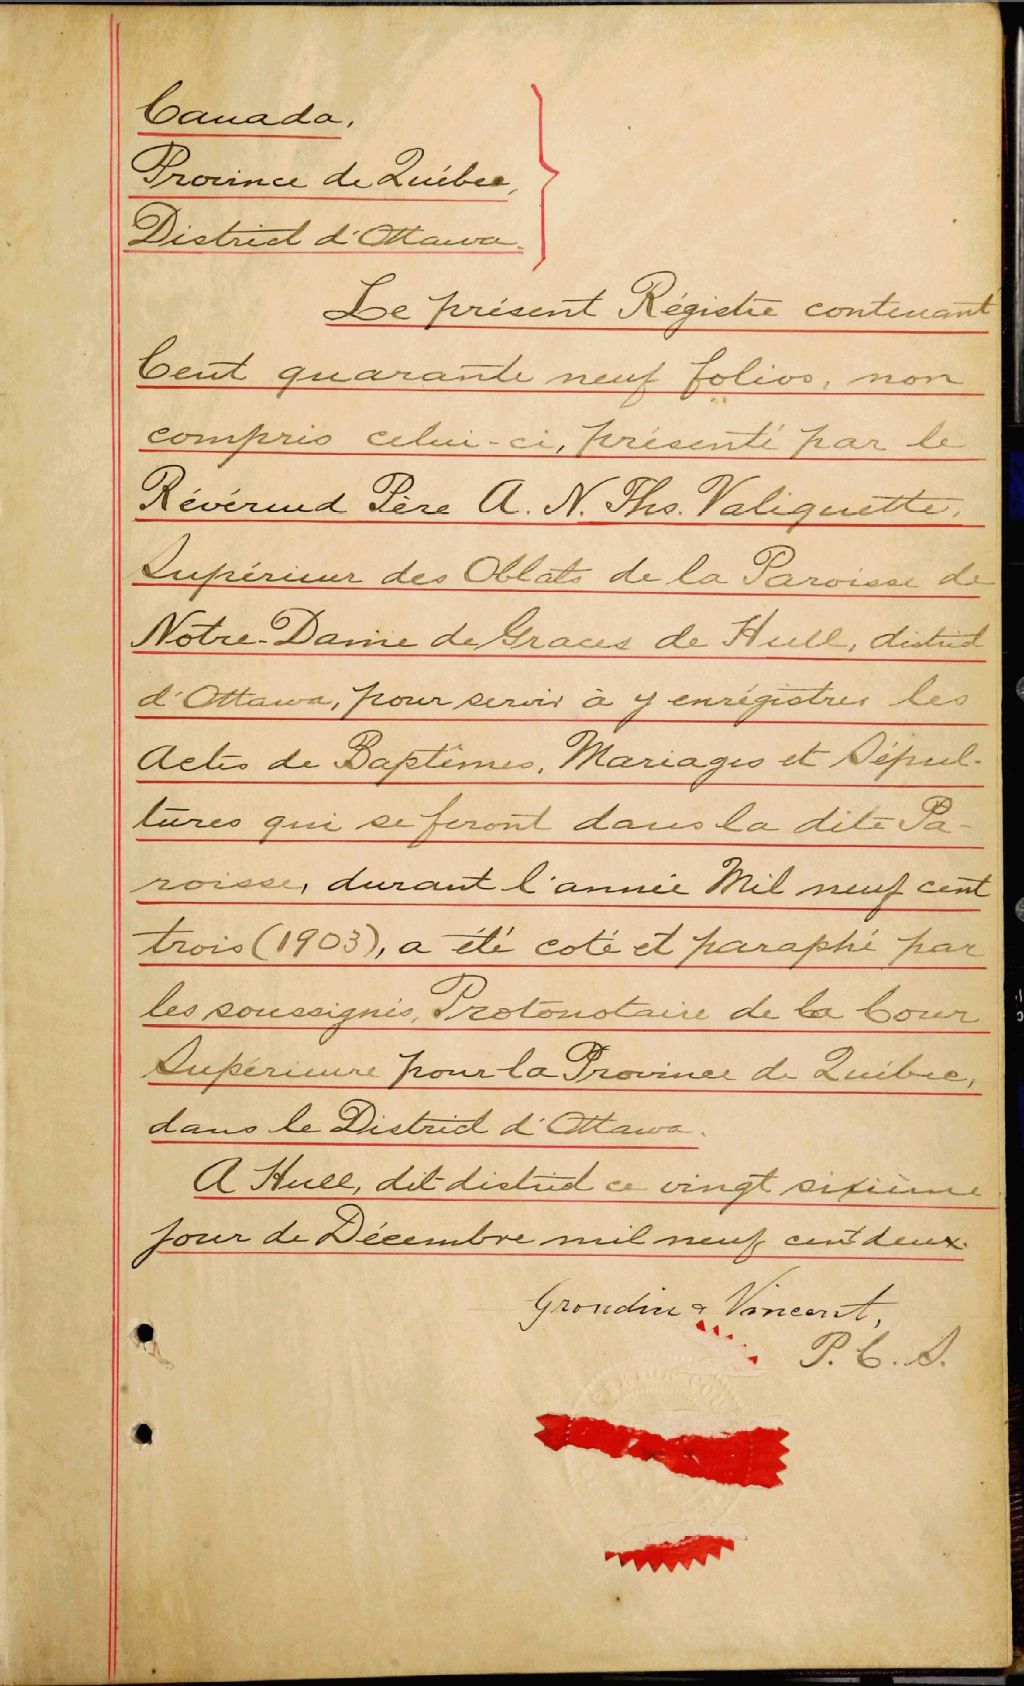 Canada,
Province de Québec,
District d'Ottawa.
Le présent Régistre contenant
Cent quarante neuf folios, non
compris celui-ci, présenté par le
Révérend Père A. N. Ths. Valiquette,
Supérieur des Oblats de la Paroisse de
Notre-Dame de Graces de Hull, district
d'Ottawa, pour servir à y enrégistrer les
Actes de Baptêmes, Mariages et Sépul-
tures qui se feront dans la dite Pa-
roisse, durant l'année Mil neuf cent
trois (1903), a été coté et paraphé par
les soussignés, Protonotaire de la Cour
Supérieure pour la Province de Québec,
dans le District d'Ottawa.
A Hull, dit district ce vingt sixième
jour de Décembre mil neuf cent deux.
Grondin & Vincent,
P. C. S.